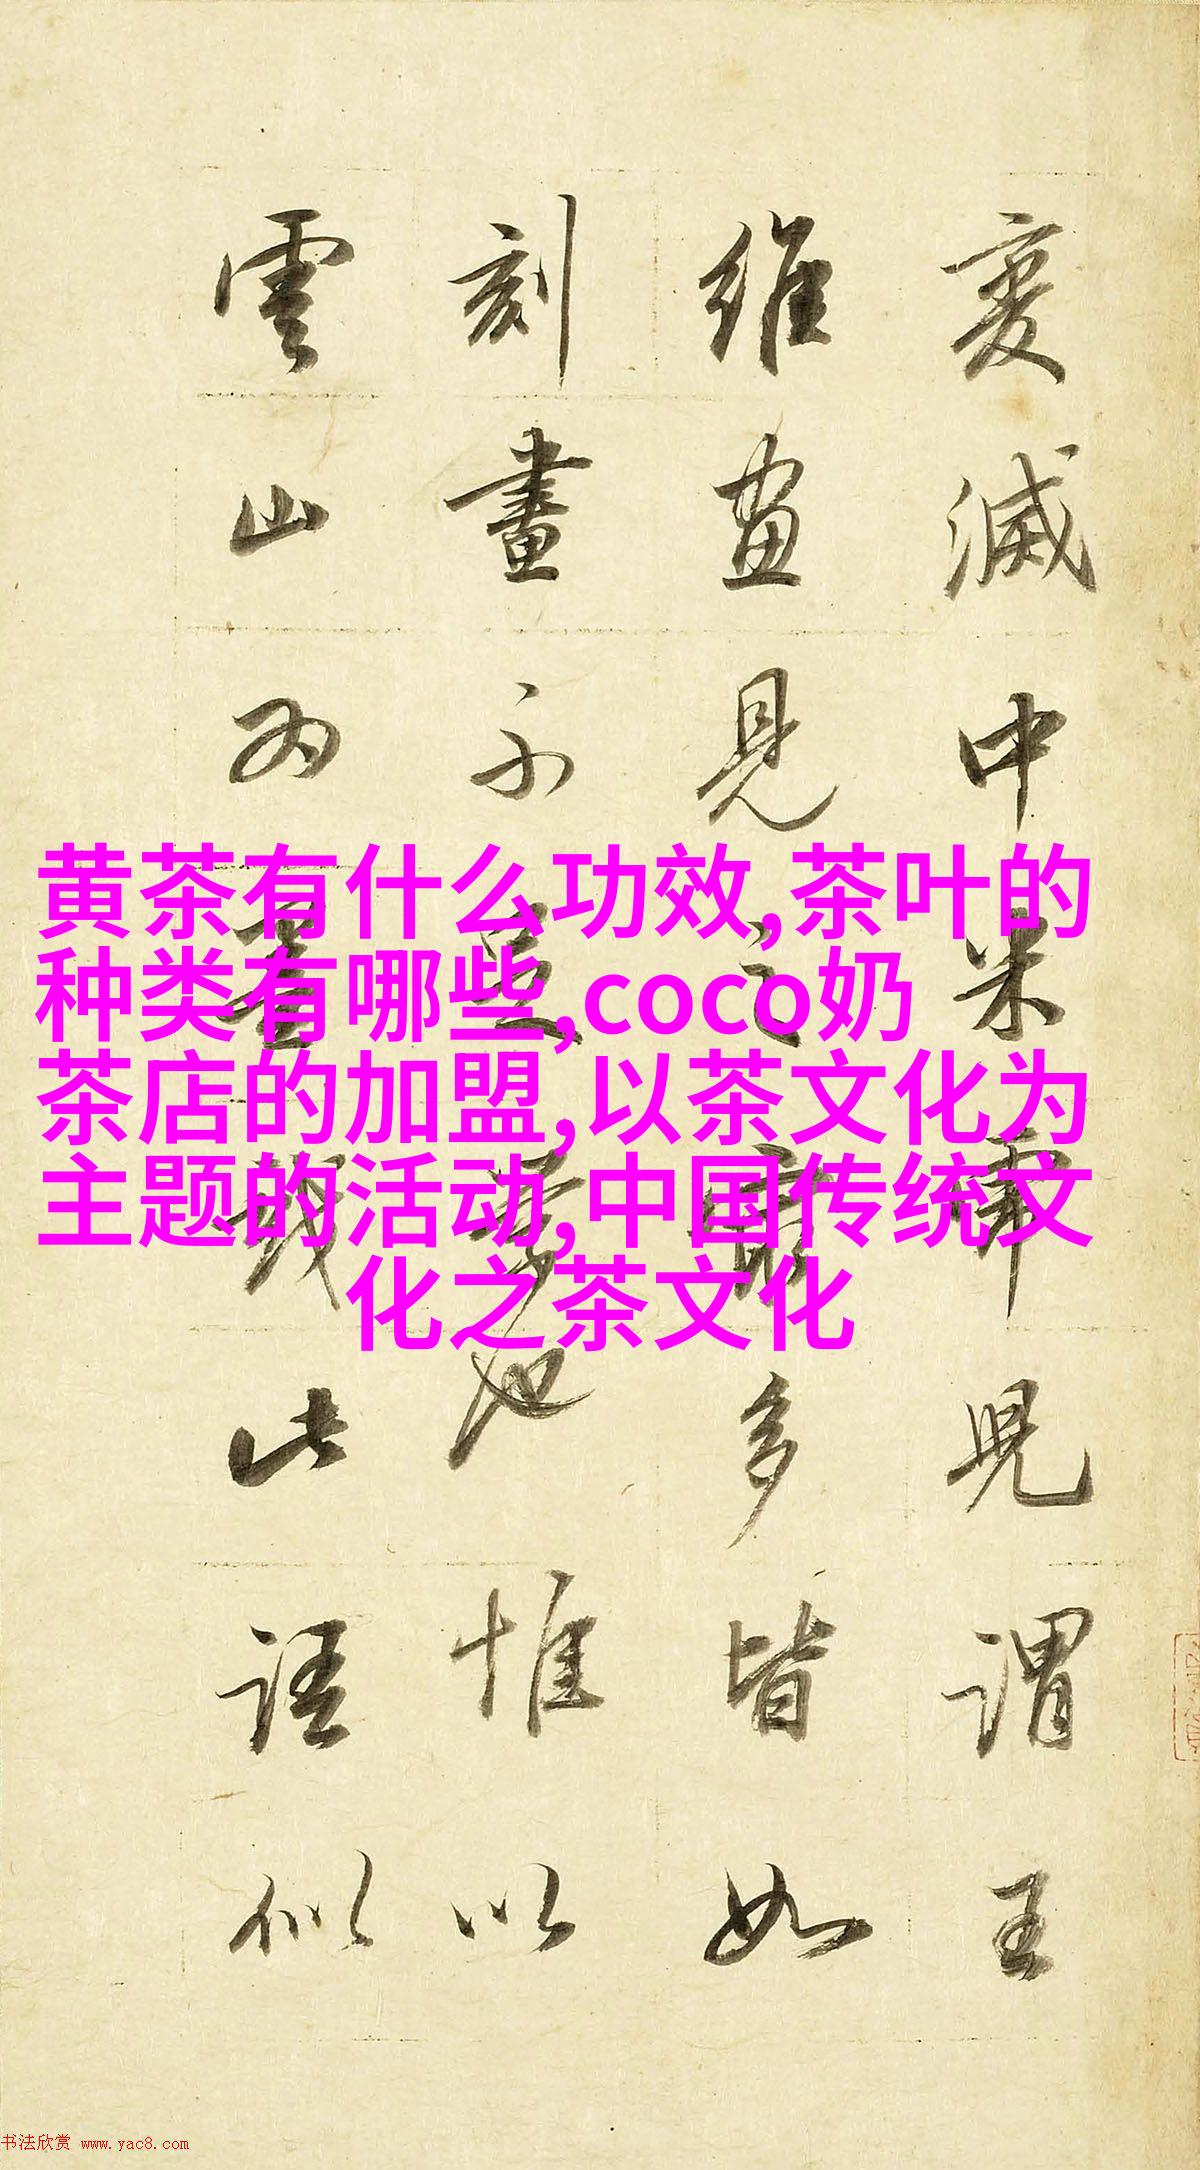 變滅中米虎兒謂王
維畫見之最多皆如
刻畫不足學也惟以
雲山為墨戲此語似
黄茶有什么功效,茶叶的
种类有哪些,coco奶
茶店的加盟,以茶文化为
主题的活动,中国传统文
化之茶文化
书法欣赏 www.yac8.com